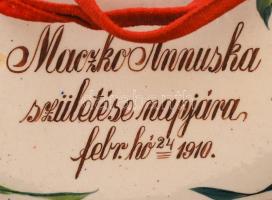 Maczko Annuska
születése napjára
febr. hó 24 1910.